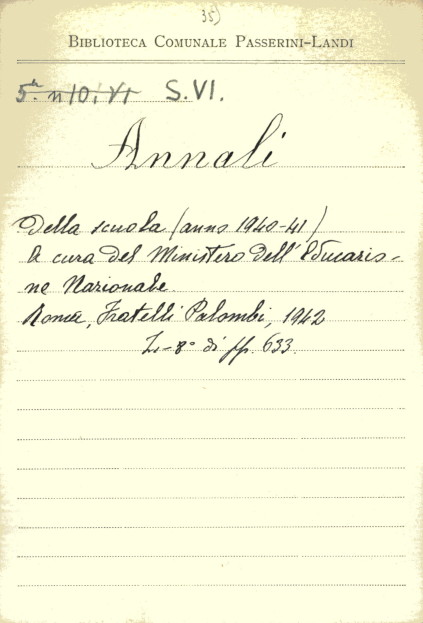 35)
BIBLIOTECA COMUNALE PASSERINI-LANDI
5ª. n10, VI S.VI.
Annali
Della scuola (anno 1940-41)
A cura del Ministero dell'Educazio-
ne Nazionale.
Roma, Fratelli Palombi, 1942
In-8° di pp. 633.